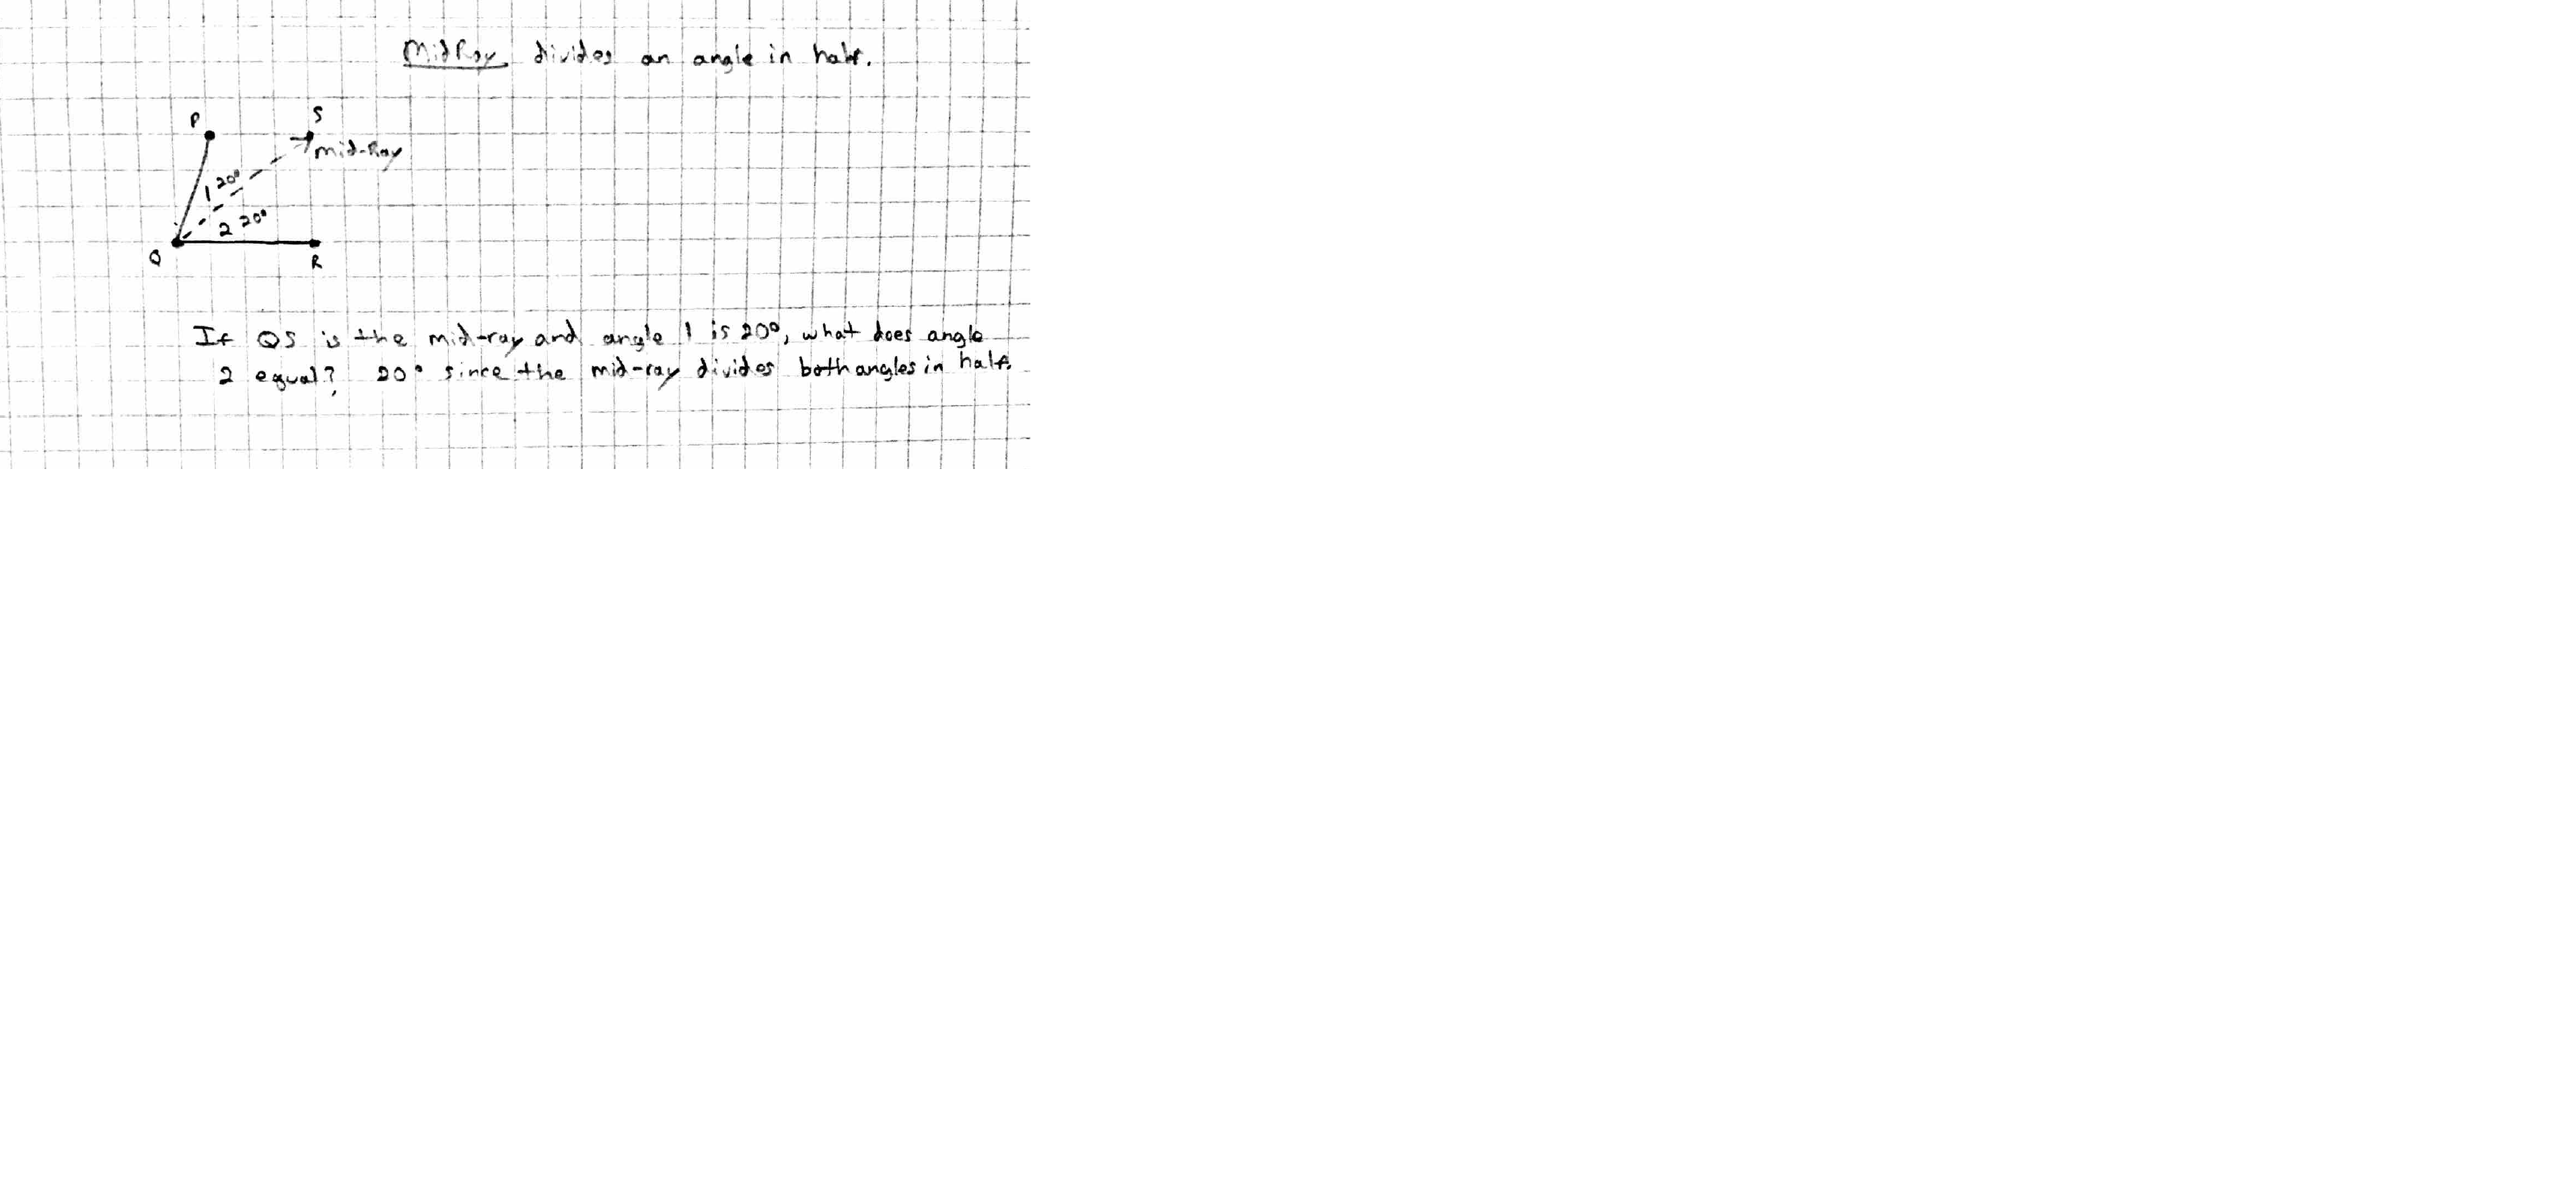 MidRay divides an angle in half.
P
S
mid-Ray
1 20°
2 20°
Q
R
If QS is the mid-ray and angle 1 is 20°, what does angle
2 equal? 20° since the mid-ray divides both angles in half.